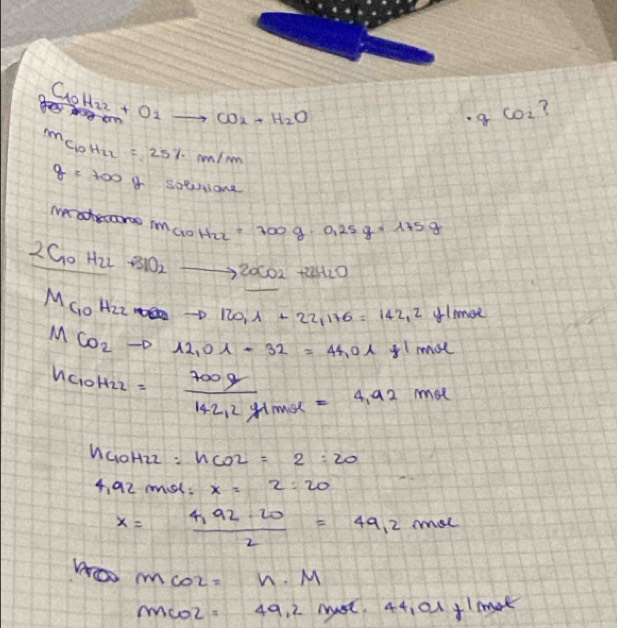 C10H22 + O2 → CO2 + H2O
· g CO2?
mC10H22 = 25% m/m
g = 700 g soluzione
mC10H22 = 700 g · 0,25 g = 175g
2C10H22 + 31O2 → 20CO2 + 22H2O
MC10H22 → 120,1 + 22,176 = 142,2 g/mol
MCO2 → 12,01 + 32 = 44,01 g/mol
nC10H22 = 700 g / 142,2 g/mol = 4,92 mol
nC10H22 : nCO2 = 2 : 20
4,92 mol : x = 2 : 20
x = 4,92 · 20 / 2 = 49,2 mol
mCO2 = n · M
mCO2 = 49,2 mol · 44,01 g/mol